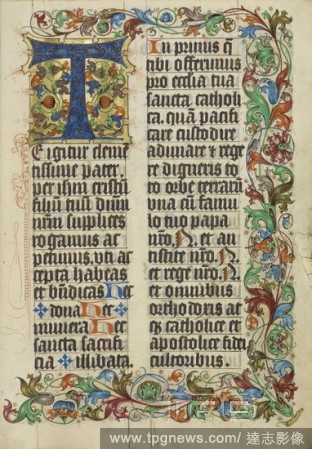 T
E igitur cleme
tissime pater.
per ihm cristū
filiū tuū dūm
nrm supplices
rogamus ac
petimus. vti ac
cepta habeas
et bn̄dicas Hec
dona Hec
munera Hec
sancta sacrifi
cia illibata.
In primis q̄
tibi offerimus
pro ecclīa tua
sancta catholi
ca. quā pacifi
care custodire
adunare et rege
re digneris to
to orbe terrarū
una cū famu
lo tuo papa
nr̄o. N. et an
tistite nr̄o. N.
et rege nr̄o. N.
et omnibus
orthodoxis at
q̄ catholice et
apostolice fidei
cultoribus.
www.tpgnews.com/ 達志影像